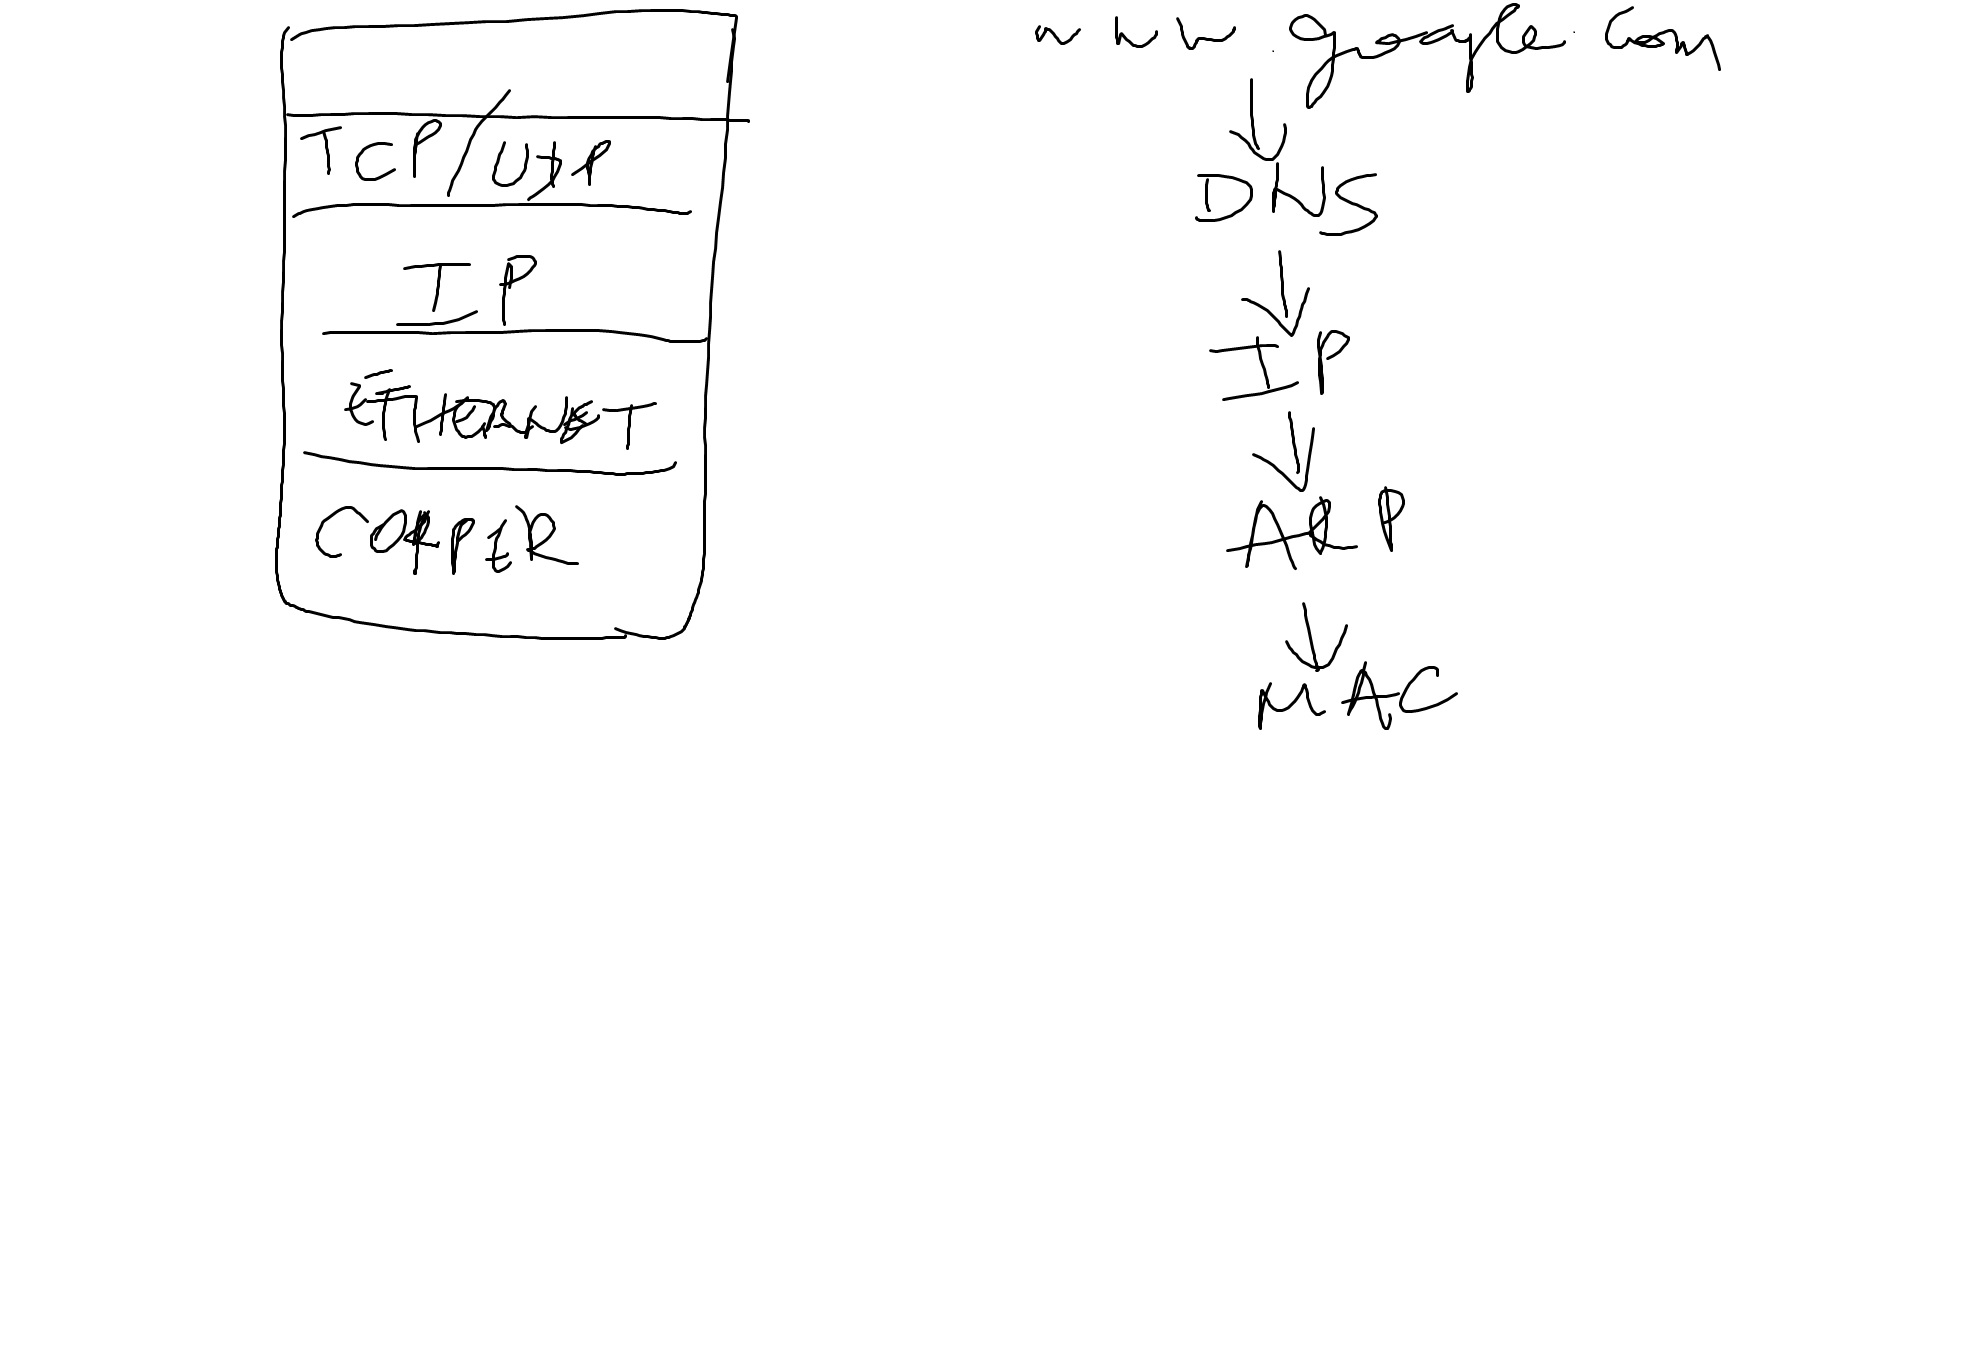 TCP/UDP
IP
ETHERNET
COPPER
www.google.com
DNS
IP
ARP
MAC